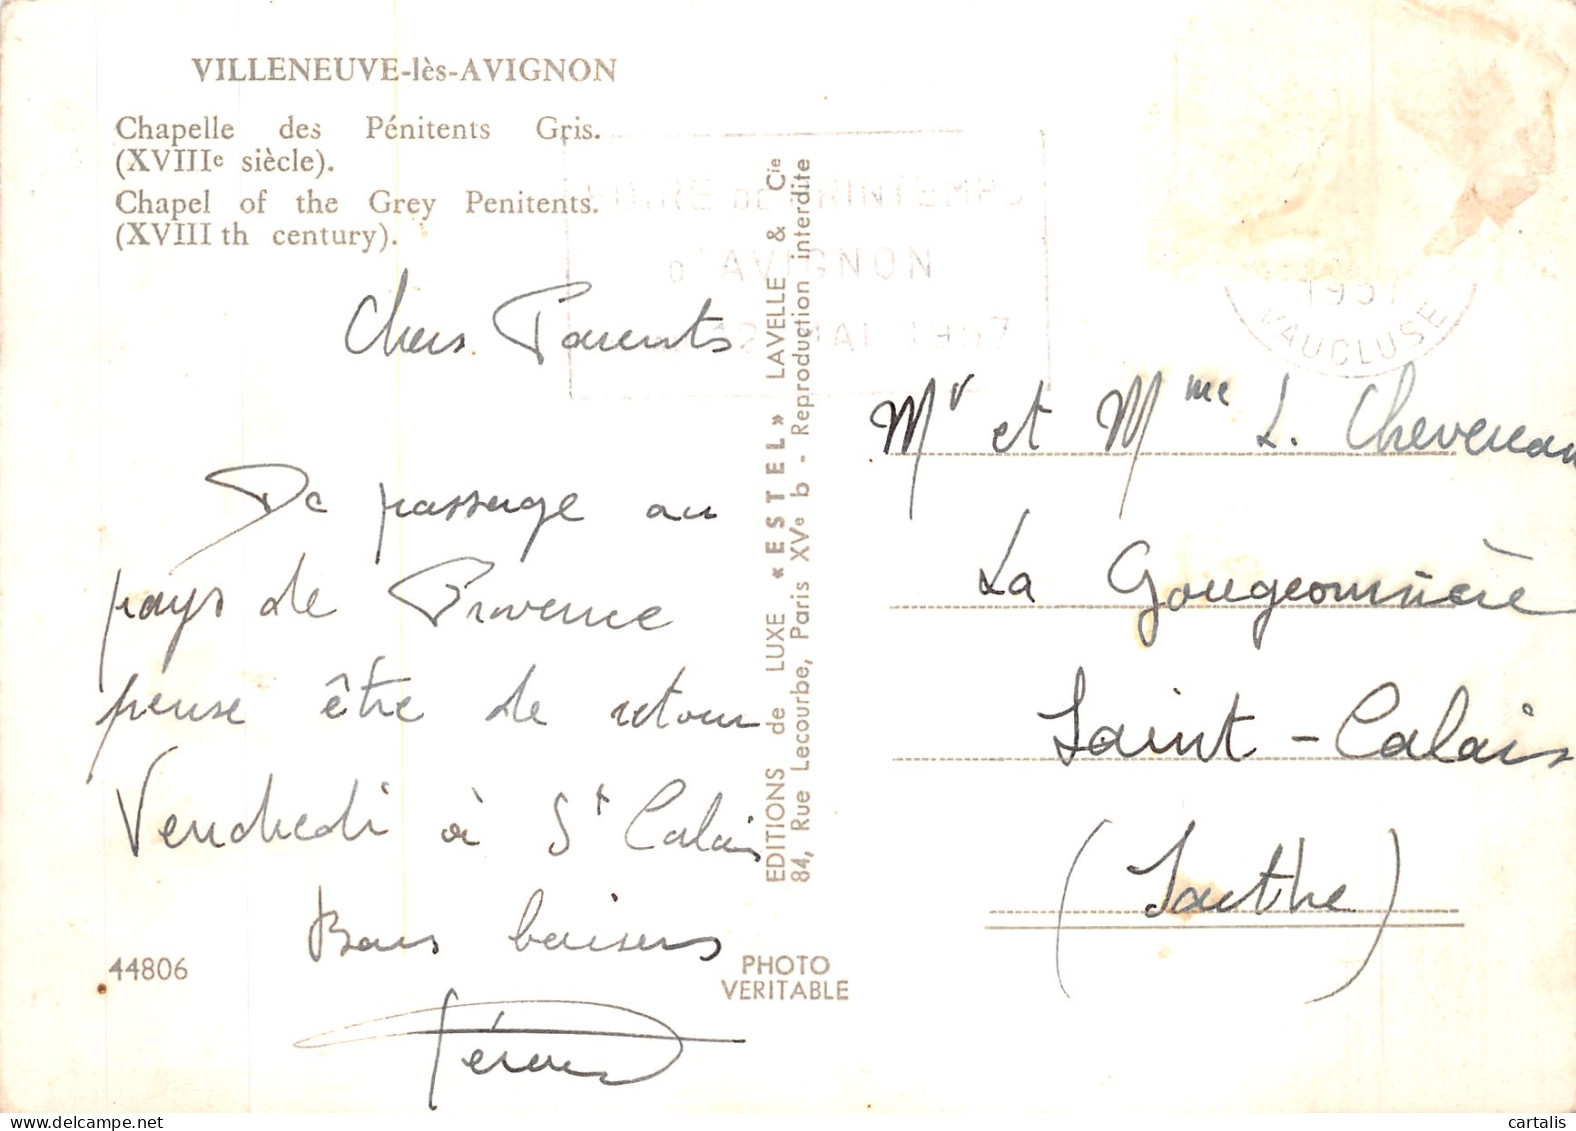 VILLENEUVE-lès-AVIGNON
Chapelle des Pénitents Gris.
(XVIIIe siècle).
Chapel of the Grey Penitents.
(XVIII th century).
Chers Parents
De passage au
pays de Provence
pense être de retour
Vendredi à St Calais
Bons baisers
44806
PHOTO
VERITABLE
EDITIONS de LUXE « ESTEL » LAVELLE & Cie
84, Rue Lecourbe, Paris XVe b - Reproduction interdite
DE PRINTEMPS
D'AVIGNON
MAI 1957
1957
VAUCLUSE
Mr et Mme L. Chevereau
La Gougeonnière
Saint-Calais
(Sarthe)
cartalis